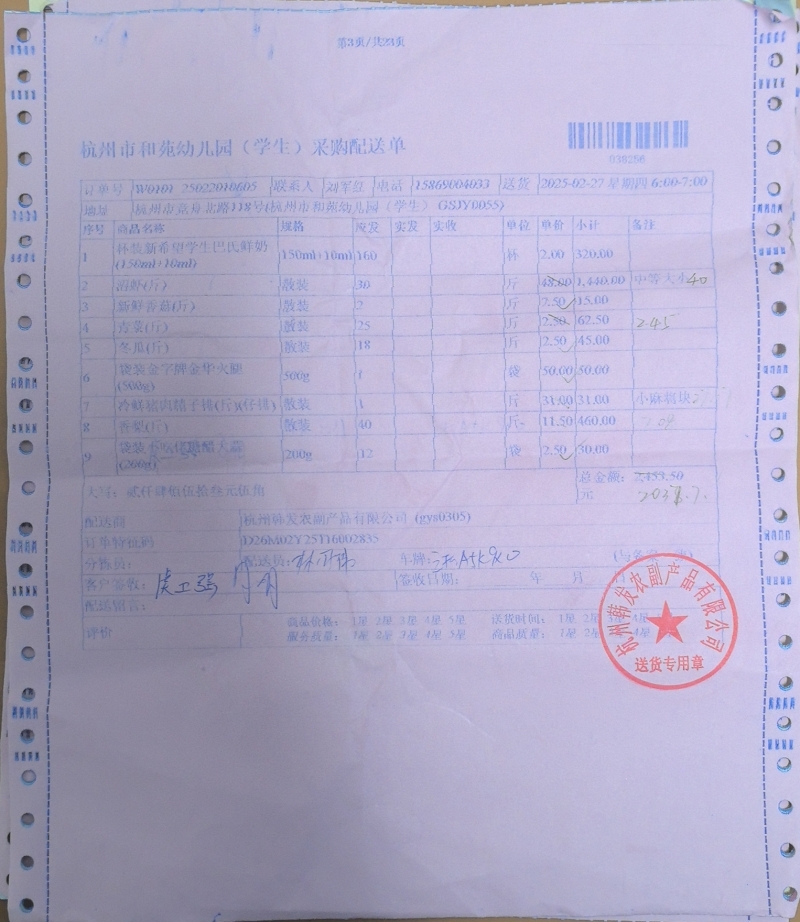 第3页/共23页
杭州市和苑幼儿园（学生）采购配送单
038286
订单号 W0101-25022010605 联系人 刘军红 电话 15869004033 送货 2025-02-27 星期四 6:00-7:00
地址 杭州市京舟北路118号(杭州市和苑幼儿园（学生）GSJY0055)
序号 商品名称 规格 应发 实发 实收 单位 单价 小计 备注
1 杯装新希望学生巴氏鲜奶(150ml+10ml) 150ml+10ml 160 杯 2.00 320.00
2 沼虾(斤) 散装 30 斤 48.00 1,440.00 中等大小 40
3 新鲜香菇(斤) 散装 2 斤 7.50 15.00
4 青菜(斤) 散装 25 斤 2.50 62.50 2.45
5 冬瓜(斤) 散装 18 斤 2.50 45.00
6 袋装金字牌金华火腿(500g) 500g 1 袋 50.00 50.00
7 冷鲜猪肉精子排(斤)(仔排) 散装 1 斤 31.00 31.00 小麻将块
8 香梨(斤) 散装 40 斤 11.50 460.00
9 袋装 糖醋大蒜(200g) 200g 12 袋 2.50 30.00
总金额： 2,453.50
大写：贰仟肆佰伍拾叁元伍角 元
配送商 杭州韩发农副产品有限公司 (gys0305)
订单特征码 D26M02Y25T1600283S
分拣员： 配送员： 车牌：
客户签收： 签收日期： 年 月 日
配送留言：
评价 商品价格： 1星 2星 3星 4星 5星 送货时间： 1星 2星 3星 4星
服务质量： 1星 2星 3星 4星 5星 商品质量： 1星 2星 3星 4星
杭州韩发农副产品有限公司
送货专用章